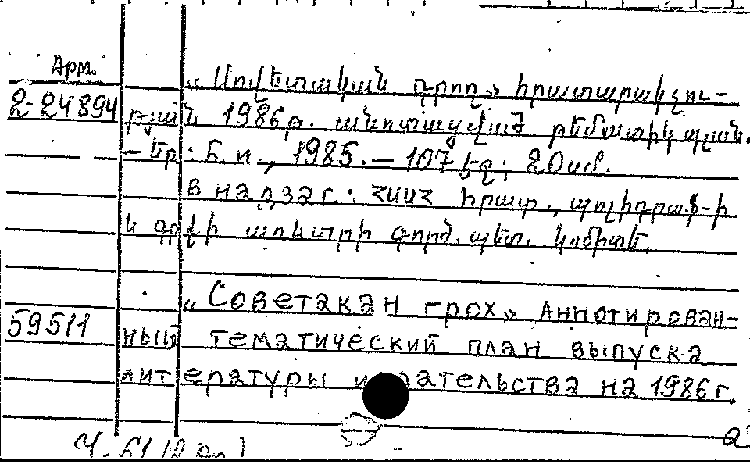 Арм.
«Սովետական գրող» հրատարակչու-
2-24894 թյան 1986թ. անոտացված թեմատիկ պլան.
– Եր.: Б. и., 1985. – 107 էջ; 20սմ.
В надзаг.: ՀՍՍՀ հրատ., պոլիգրաֆ-ի
և գրքի առևտրի գործ. պետ. կոմիտե.
«Советакан грох» Аннотирован-
59511 ный тематический план выпуска
литературы издательства на 1986г.